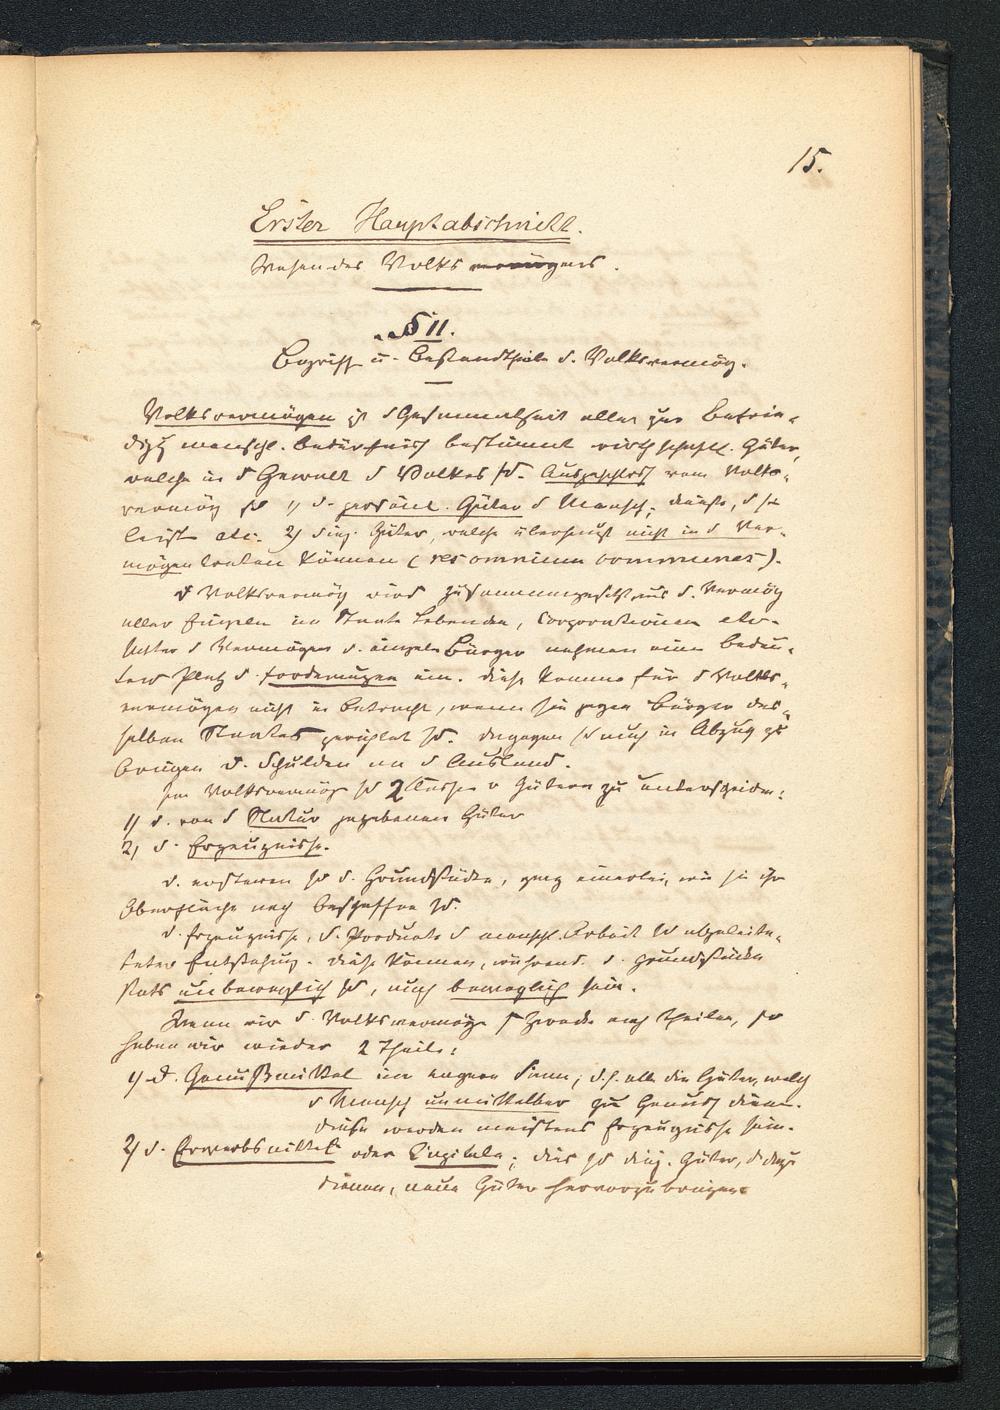 15.
Erster Hauptabschnitt.
Wesen des Volksvermögens.
§ 11.
Begriff u. Bestandtheile d. Volksvermög.
Volksvermögen ist d Gesammtheit aller zur Befrie-
digg menschl. Bedürfniss bestimmt wirthschaftl. Güter,
welche in d Gewalt d Volkes sd. Ausgeschloss vom Volks-
vermög sd 1) d. persönl. Güter d Mensch, Dienste,
leist etc. 2) diej. Güter, welche überhaupt nicht in d Ver-
mögen treten können (res omnium communes).
d Volksvermög wird zusammengesetzt aus d. Vermög
aller Einzeln im Staate Lebenden, Corporationen etc.
Unter d Vermögen d. einzeln Bürger nehmen eine bedeu-
tend Platz d. Forderungen ein. diese komme für d Volks-
vermögen nicht in Betracht, wenn sie gegen Bürger des-
selben Staates gerichtet sd. dagegen sd auch in Abzug zu
bringen d. Schulden an d Ausland.
Im Volksvermög sd 2 Classen v Gütern zu unterscheiden:
1) d. von d Natur gegebenen Güter
2) d. Erzeugnisse.
d. ersteren sd d. Grundstücke, ganz einerlei, wie sie ihr
Oberfläche nach beschaffen sd.
d. Erzeugnisse, d. Producte d menschl. Arbeit sd abgeleite-
teter Entstehung. diese können, während d. Grundstücke
stets unbeweglich sd, auch beweglich sein.
Wenn wir d. Volksvermöge Zwecke nach theilen, so
haben wir wieder 2 Theile:
1) d. Genußmittel im engern Sinn, d.h. alle die Güter, welch
d Mensch unmittelbar zu Genuss dien.
diese werden meistens Erzeugnisse sein.
2) d. Erwerbsmittel oder Capitale; dies sd diej. Güter, d dazu
dienen, neue Güter hervorzubringen.